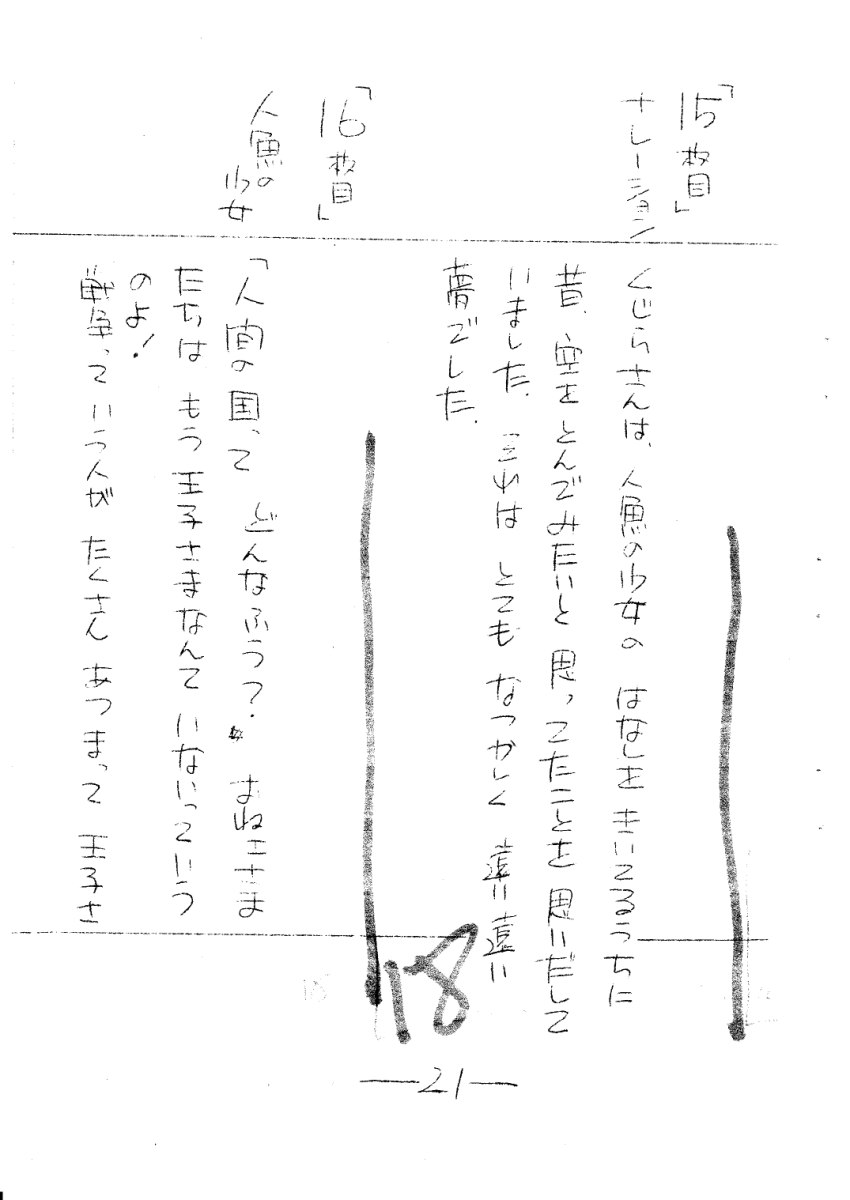 「15枚目」
ナレーション
くじらさんは、人魚の少女の はなしを きいてるうちに
昔、空を とんでみたいと 思ってたことを 思いだして
いました。これは とても なつかしく 遠い遠い
夢でした。
「16枚目」
人魚の
少女
「人間の国って どんなふう?. おねえさま
たちは もう 王子さまなんて いないっていう
のよ!
戦争っていう人が たくさん あつまって 王子さ
18
—21—